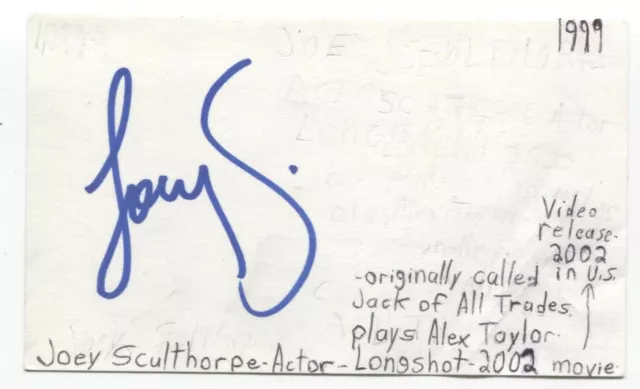 1999
Joey S.
Video
release-
2002
in U.S.
-originally called
Jack of All Trades.
plays Alex Taylor-
Joey Sculthorpe-Actor-Longshot-2002 movie-